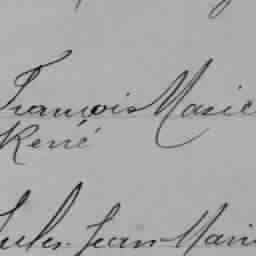 François Marie
René
Jules Jean Marie